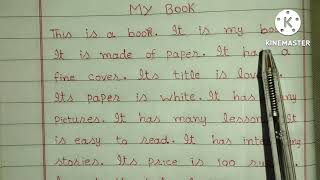 MY BOOK
This is a book. It is my
It is made of paper. It has a
fine covers. Its title is
Its paper is white. It has
pictures. It has many
is easy to read. It has
stories. Its price is 100
KINEMASTER